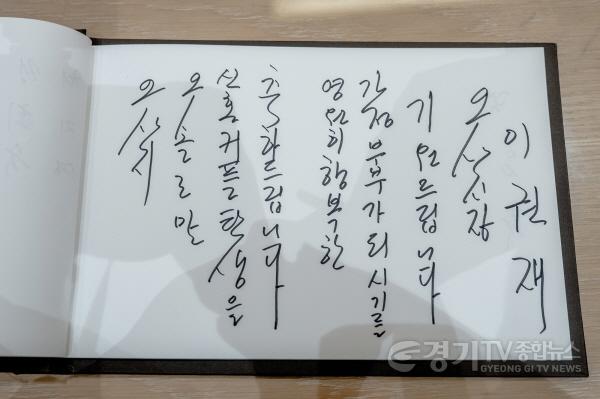 오산시
오솔로만
신혼커플탄생을
축하드립니다
영원히 행복한
가정 부부가 되시기를
기원드립니다
오산시장
이권재
경기TV종합뉴스
GYEONG GI TV NEWS